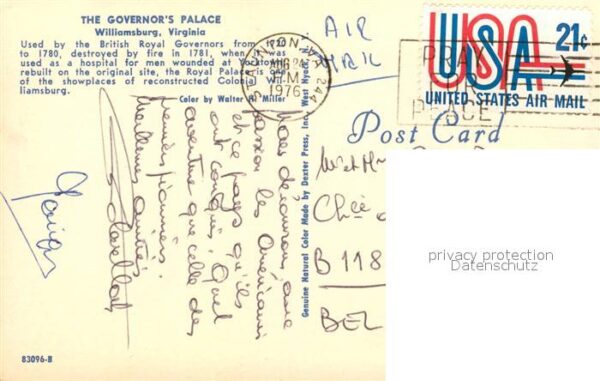 THE GOVERNOR'S PALACE
Williamsburg, Virginia
Used by the British Royal Governors from 1720
to 1780, destroyed by fire in 1781, when it was
used as a hospital for men wounded at Yorktown
rebuilt on the original site, the Royal Palace is one
of the showplaces of reconstructed Colonial Wil-
liamsburg.
Color by Walter H. Miller
AUG
PM
1976
AIR
MAIL
USA
21¢
UNITED STATES AIR MAIL
PRAY
FOR
PEACE
Post Card
Genuine Natural Color Made by Dexter Press, Inc., West Nyack,
Nous découvrons avec
passion les Américains
et ce pays qu'ils
ont conquis. Quel
aventure que celle des
premiers pionniers.
Meilleures amitiés
B 118
BEL
privacy protection
Datenschutz
83096-B